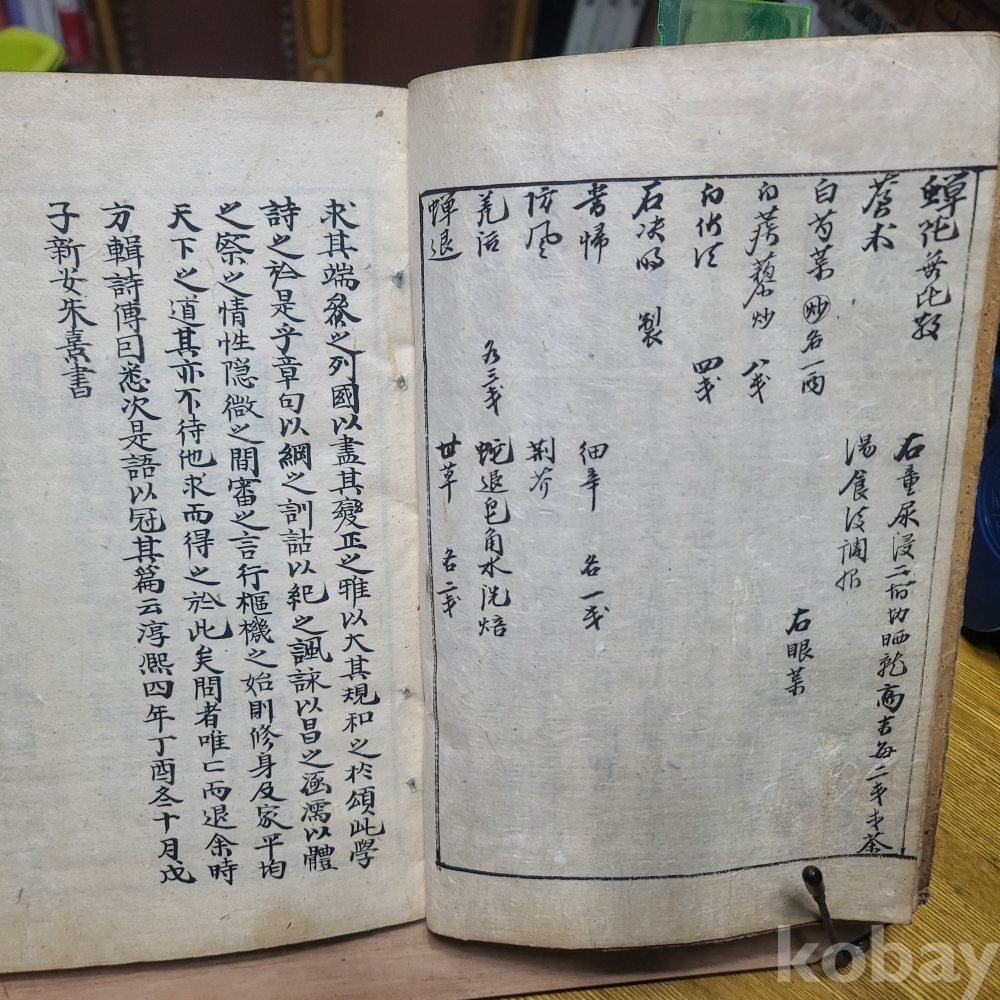 蟬花無比散
蒼朮
右童尿浸二宿切晒乾 每二戋米茶
湯食後調服
白芍藥 炒 各一兩
右眼藥
白蒺藜炒 八戋
白伏令 四戋
石决明 製
當歸 細辛 各一戋
防風 荆芥
羌活 各三戋 蛇退皂角水洗焙
蟬退 甘草 各二戋
求其端叅之列國以盡其變正之雅以大其規和之於頌此學
詩之於是乎章句以綱之訓詁以紀之諷詠以昌之涵濡以體
之察之情性隠微之間審之言行樞機之始則修身及家平均
天下之道其亦不待他求而得之於此矣問者唯亡而退余時
方輯詩傳囙悉次是語以冠其篇云淳熙四年丁酉冬十月戊
子新安朱熹書
kobay